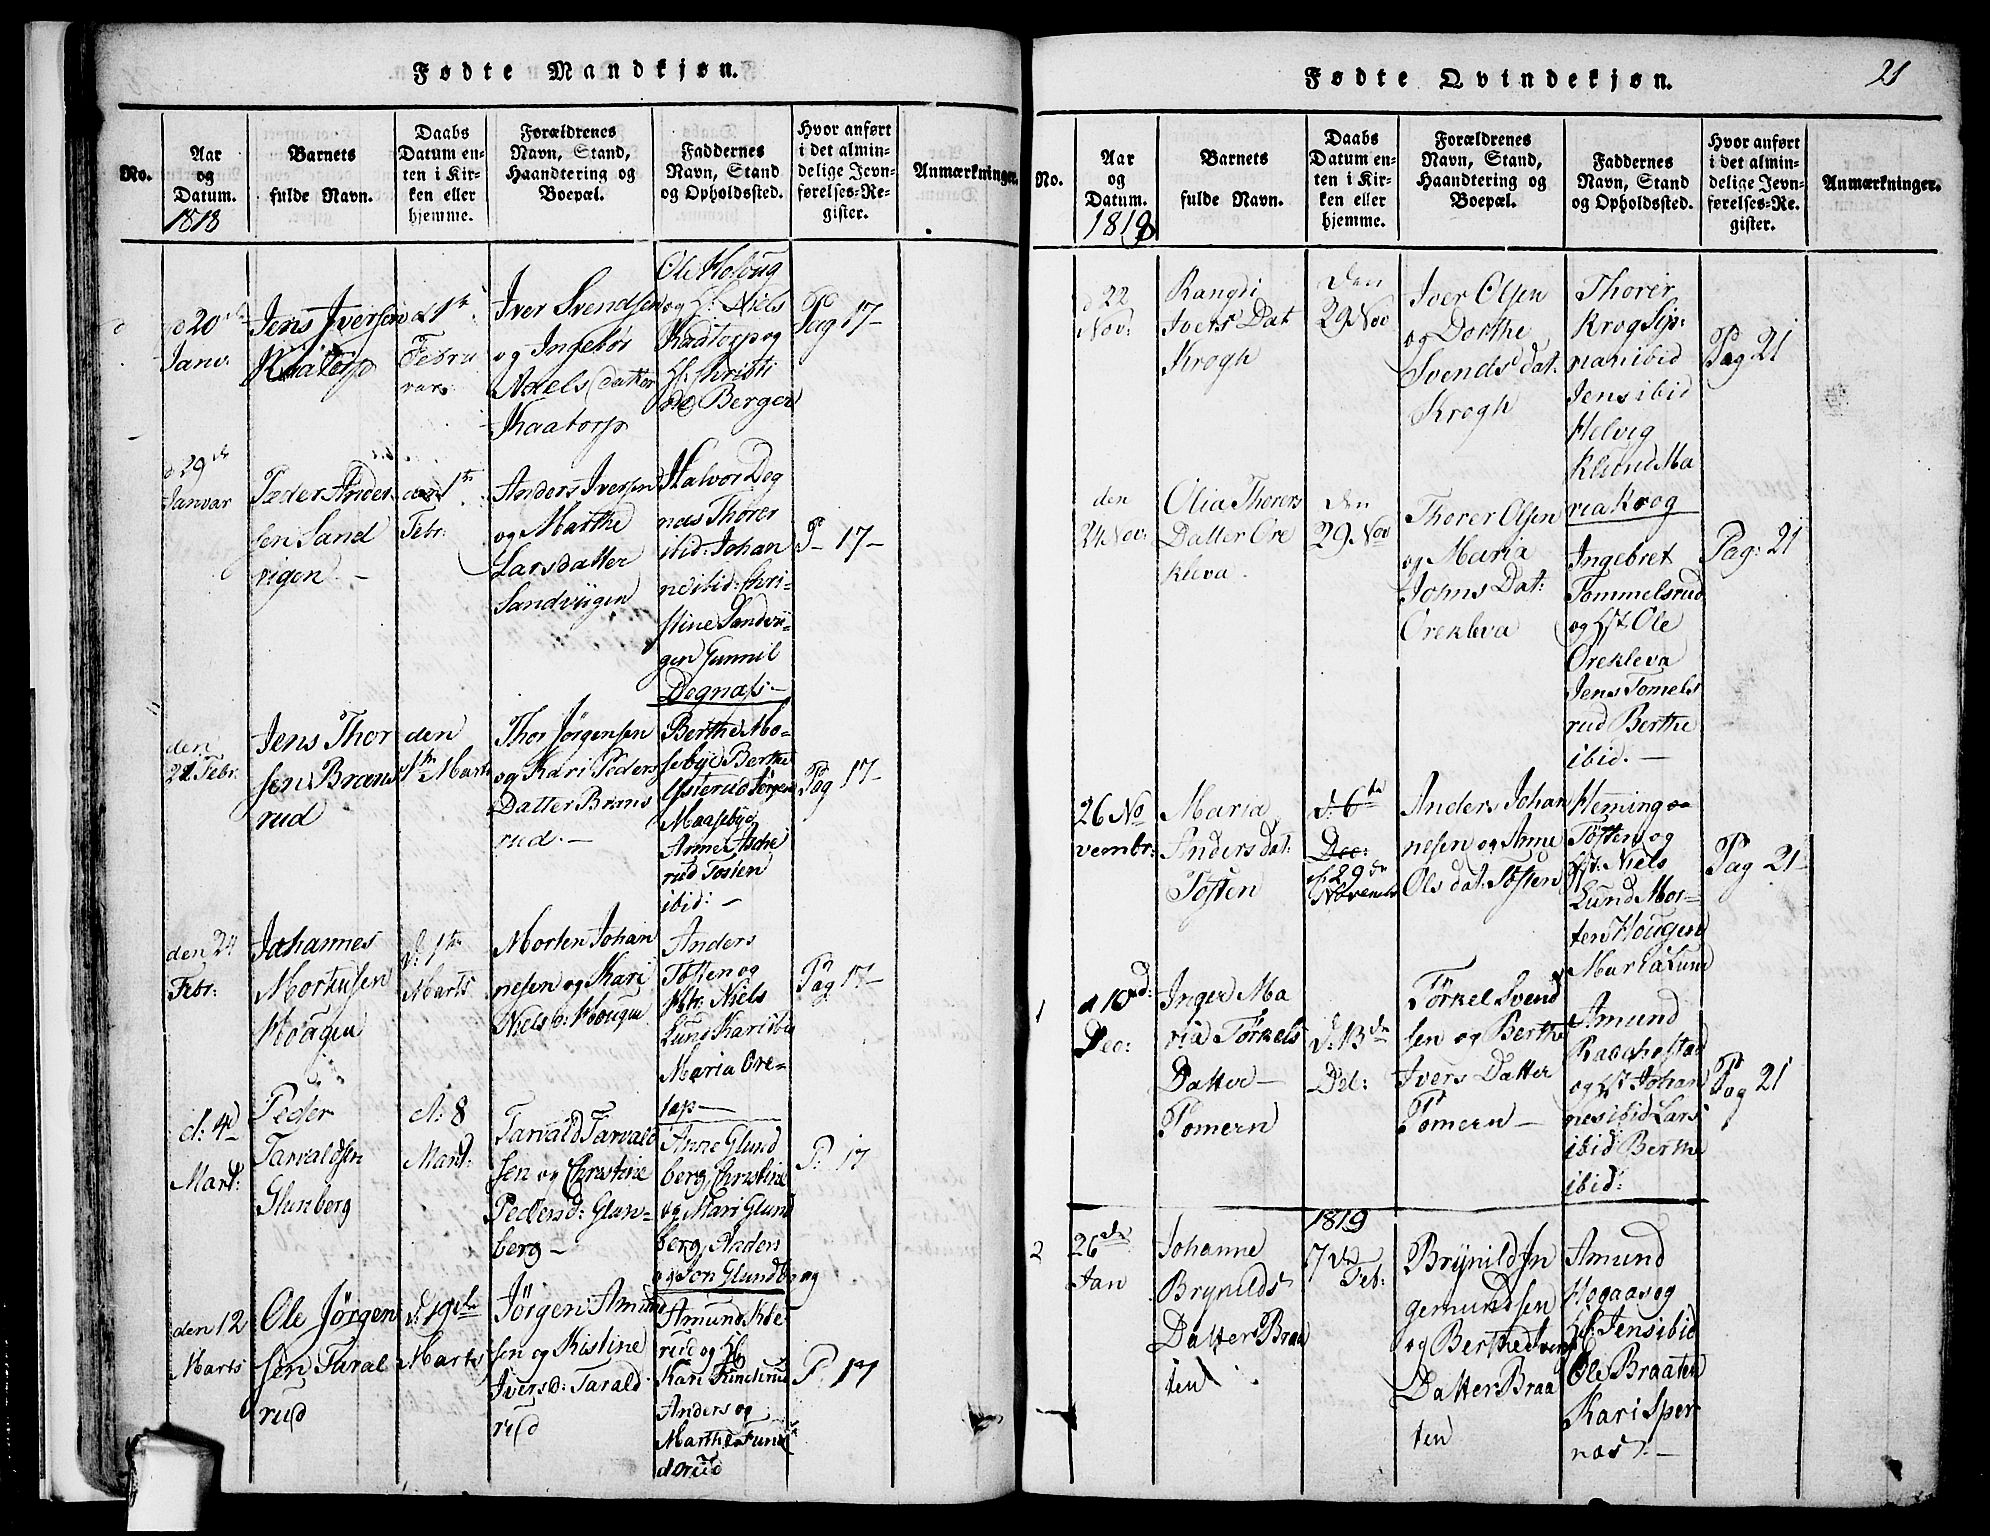 Fødte Mandkjøn.
No.
Aar
og
Datum.
1818
Barnets
fulde Navn.
Daabs
Datum en-
ten i Kir-
ken eller
hjemme.
Forældrenes
Navn, Stand,
Haandtering og
Boepæl.
Faddernes
Navn, Stand
og Opholdssted.
Hvor anført
i det almin-
delige Jevn-
førelses-Re-
gister.
Anmærkninger.
d 20
Janv:
Jens Iversen
1te
Febru
Iver Svendsen
og Ingebor
Axels datter
Kaatorp
Niels
Kaatorp og
Christi
Berger
Pag 17-
d 29de
Januar
Peder Ander-
sen Sand
vigen. -
den 1te
Febr:
Anders Iversen
og Marthe
Larsdatter
Sandviigen
Halvor Deg
næs Thorer
ibid: Johan
ne ibid: Chri-
stine Sandvii-
gen Gunnil
Degnæs-
P- 17-
den
21 Febr:
Jens Thor
sen Bræns
rud
den
1te Marts
Thor Jørgensen
og Kari Peders
Datter Bræns
rud. -
Berthe Mo-
sebye Berthe
Jørgen
Maasebye
Anne Asche
rud Tosten
ibid: -
Pag 17-
den 24
Febr:
Johannes
Mortensen
Hougen
d: 1te
Marts
Morten Johan
nesen og Kari
Niels D: Hougen
Anders
Tosten og
Hr: Niels
Lund Kari ibid
Maria Ore-
tap-
Pag 17-
d: 4de
Mart:
Peder
Tarvaldsen
Glunberg
d: 8
Mart:
Tarvald Tarvald
sen og Christine
Pedersd: Glun-
berg-
Anne Glund
berg, Christine
og Mari Glund
berg, Anders
og Jon Glundberg
P: 17
den 12
Marts
Ole Jørgen
sen Taral
rud
Marts
Jørgen Amund
sen og Kistine
Iversd: Tarald
rud
Amund
rud og
Kari Funderud
Anders og
Marthe Fun
derud
P: 17
Fødte Qvindekjøn.
21
No.
Aar
og
Datum.
1818
Barnets
fulde Navn.
Daabs
Datum en-
ten i Kir-
ken eller
hjemme.
Forældrenes
Navn, Stand,
Haandtering og
Boepæl.
Faddernes
Navn, Stand
og Opholdssted.
Hvor anført
i det almin-
delige Jevn-
førelses-Re-
gister.
Anmærkninger.
d 22
Nov:
Rangdi
Ivers Dat
Krogh
Den
29 Nov
Iver Olsen
og Dorthe
Svends dat:
Krogh
Thorer
Krog
ibid
Jens ibid
Helvig
Klund Ma
ria Krog
Pag 21
den
24 Nov:
Olia Thorers
Datter Ore
kleva.
Den
29 Nov
Thorer Olsen
og Maria
Johns Dat:
Orekleva
Ingebret
Tommelsrud
og Hst: Ole
Orekleva
Jens Tomels
rud Berthe
ibid. -
Pag: 21
26 No
vembr:
Maria
Anders dat:
Tosten
d: 6te
Dec:
d 29de
Novembr
Anders Johan
nesen og Anne
Ols dat: Tosten
Heming
Tosten og
Hst: Niels
Lund Mor-
ten Hougen
Maria Lund
Pag 21-
1
d 10d:
Dec:
Inger Ma
ria Törkels
Datter-
Pomern
d: 13de
Törkel Svend
sen og Berthe
Ivers Datter
Pomern-
Amund
og Hst Johan
nes ibid Lars
ibid Berthe
ibid:
Pag 21
2
26de
Jan
Johanne
Brynilds
Datter Braa
ten
1819
7de
Feb:
Brynild In
gemundsen
og Berthe Ivers
Datter Braa
ten
Amund
Hogaas og
Jens ibid
Ole Braaten
Kari Sper
næs. -